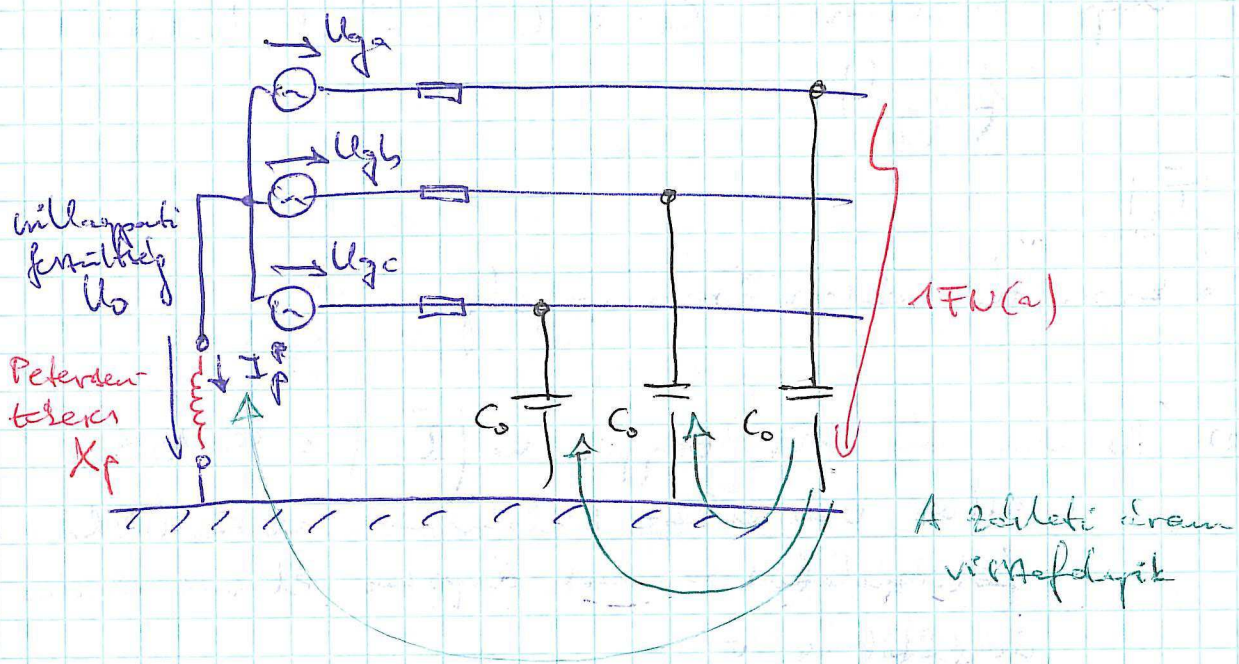 Uga
Ugb
csillagponti
feszültség
U₀
Ugc
1FN(a)
Petersen-
tekercs
Xp
Ip
C₀ C₀ C₀
A zárlati áram
visszafolyik